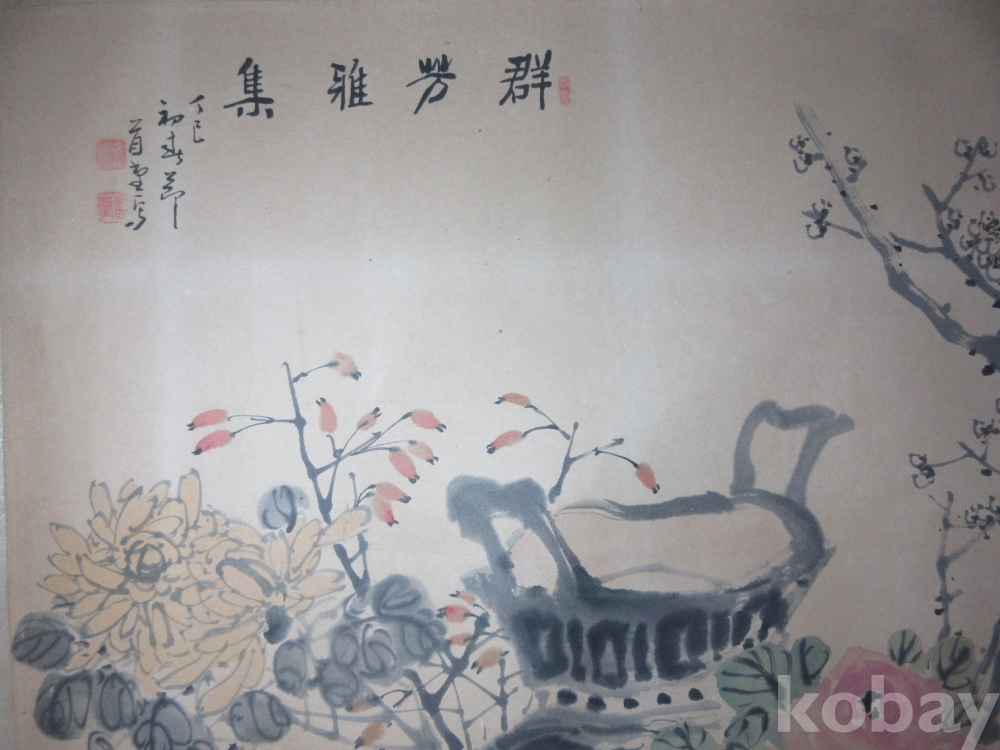 群芳雅集
丁巳
初春節
首堂写
kobay